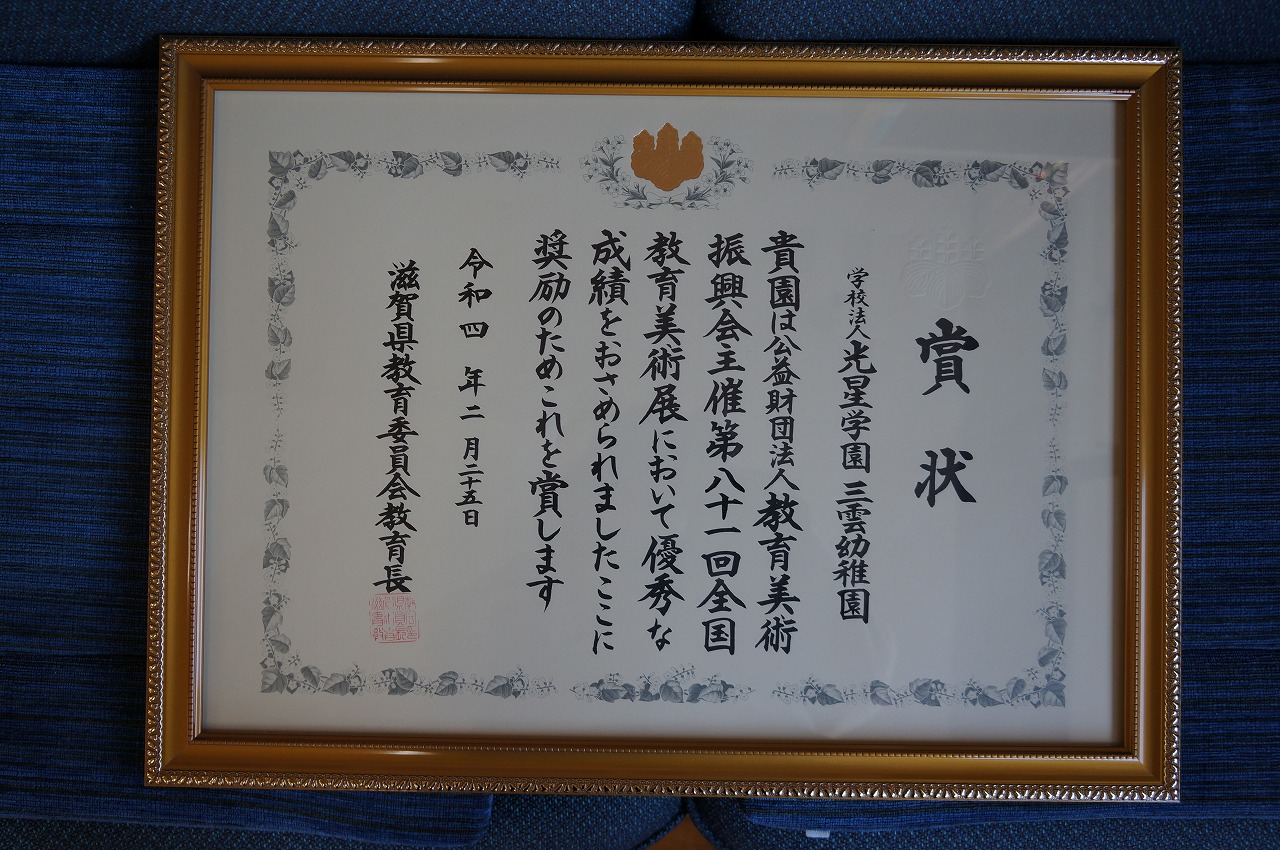 賞状
学校法人光星学園 三雲幼稚園
貴園は公益財団法人教育美術
振興会主催第八十一回全国
教育美術展において優秀な
成績をおさめられましたここに
奨励のためこれを賞します
令和四年二月二十五日
滋賀県教育委員会教育長